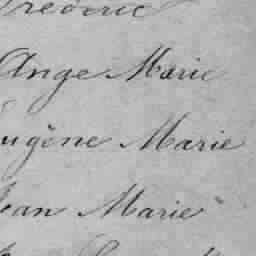 Frédéric
Ange Marie
Eugène Marie
Jean Marie